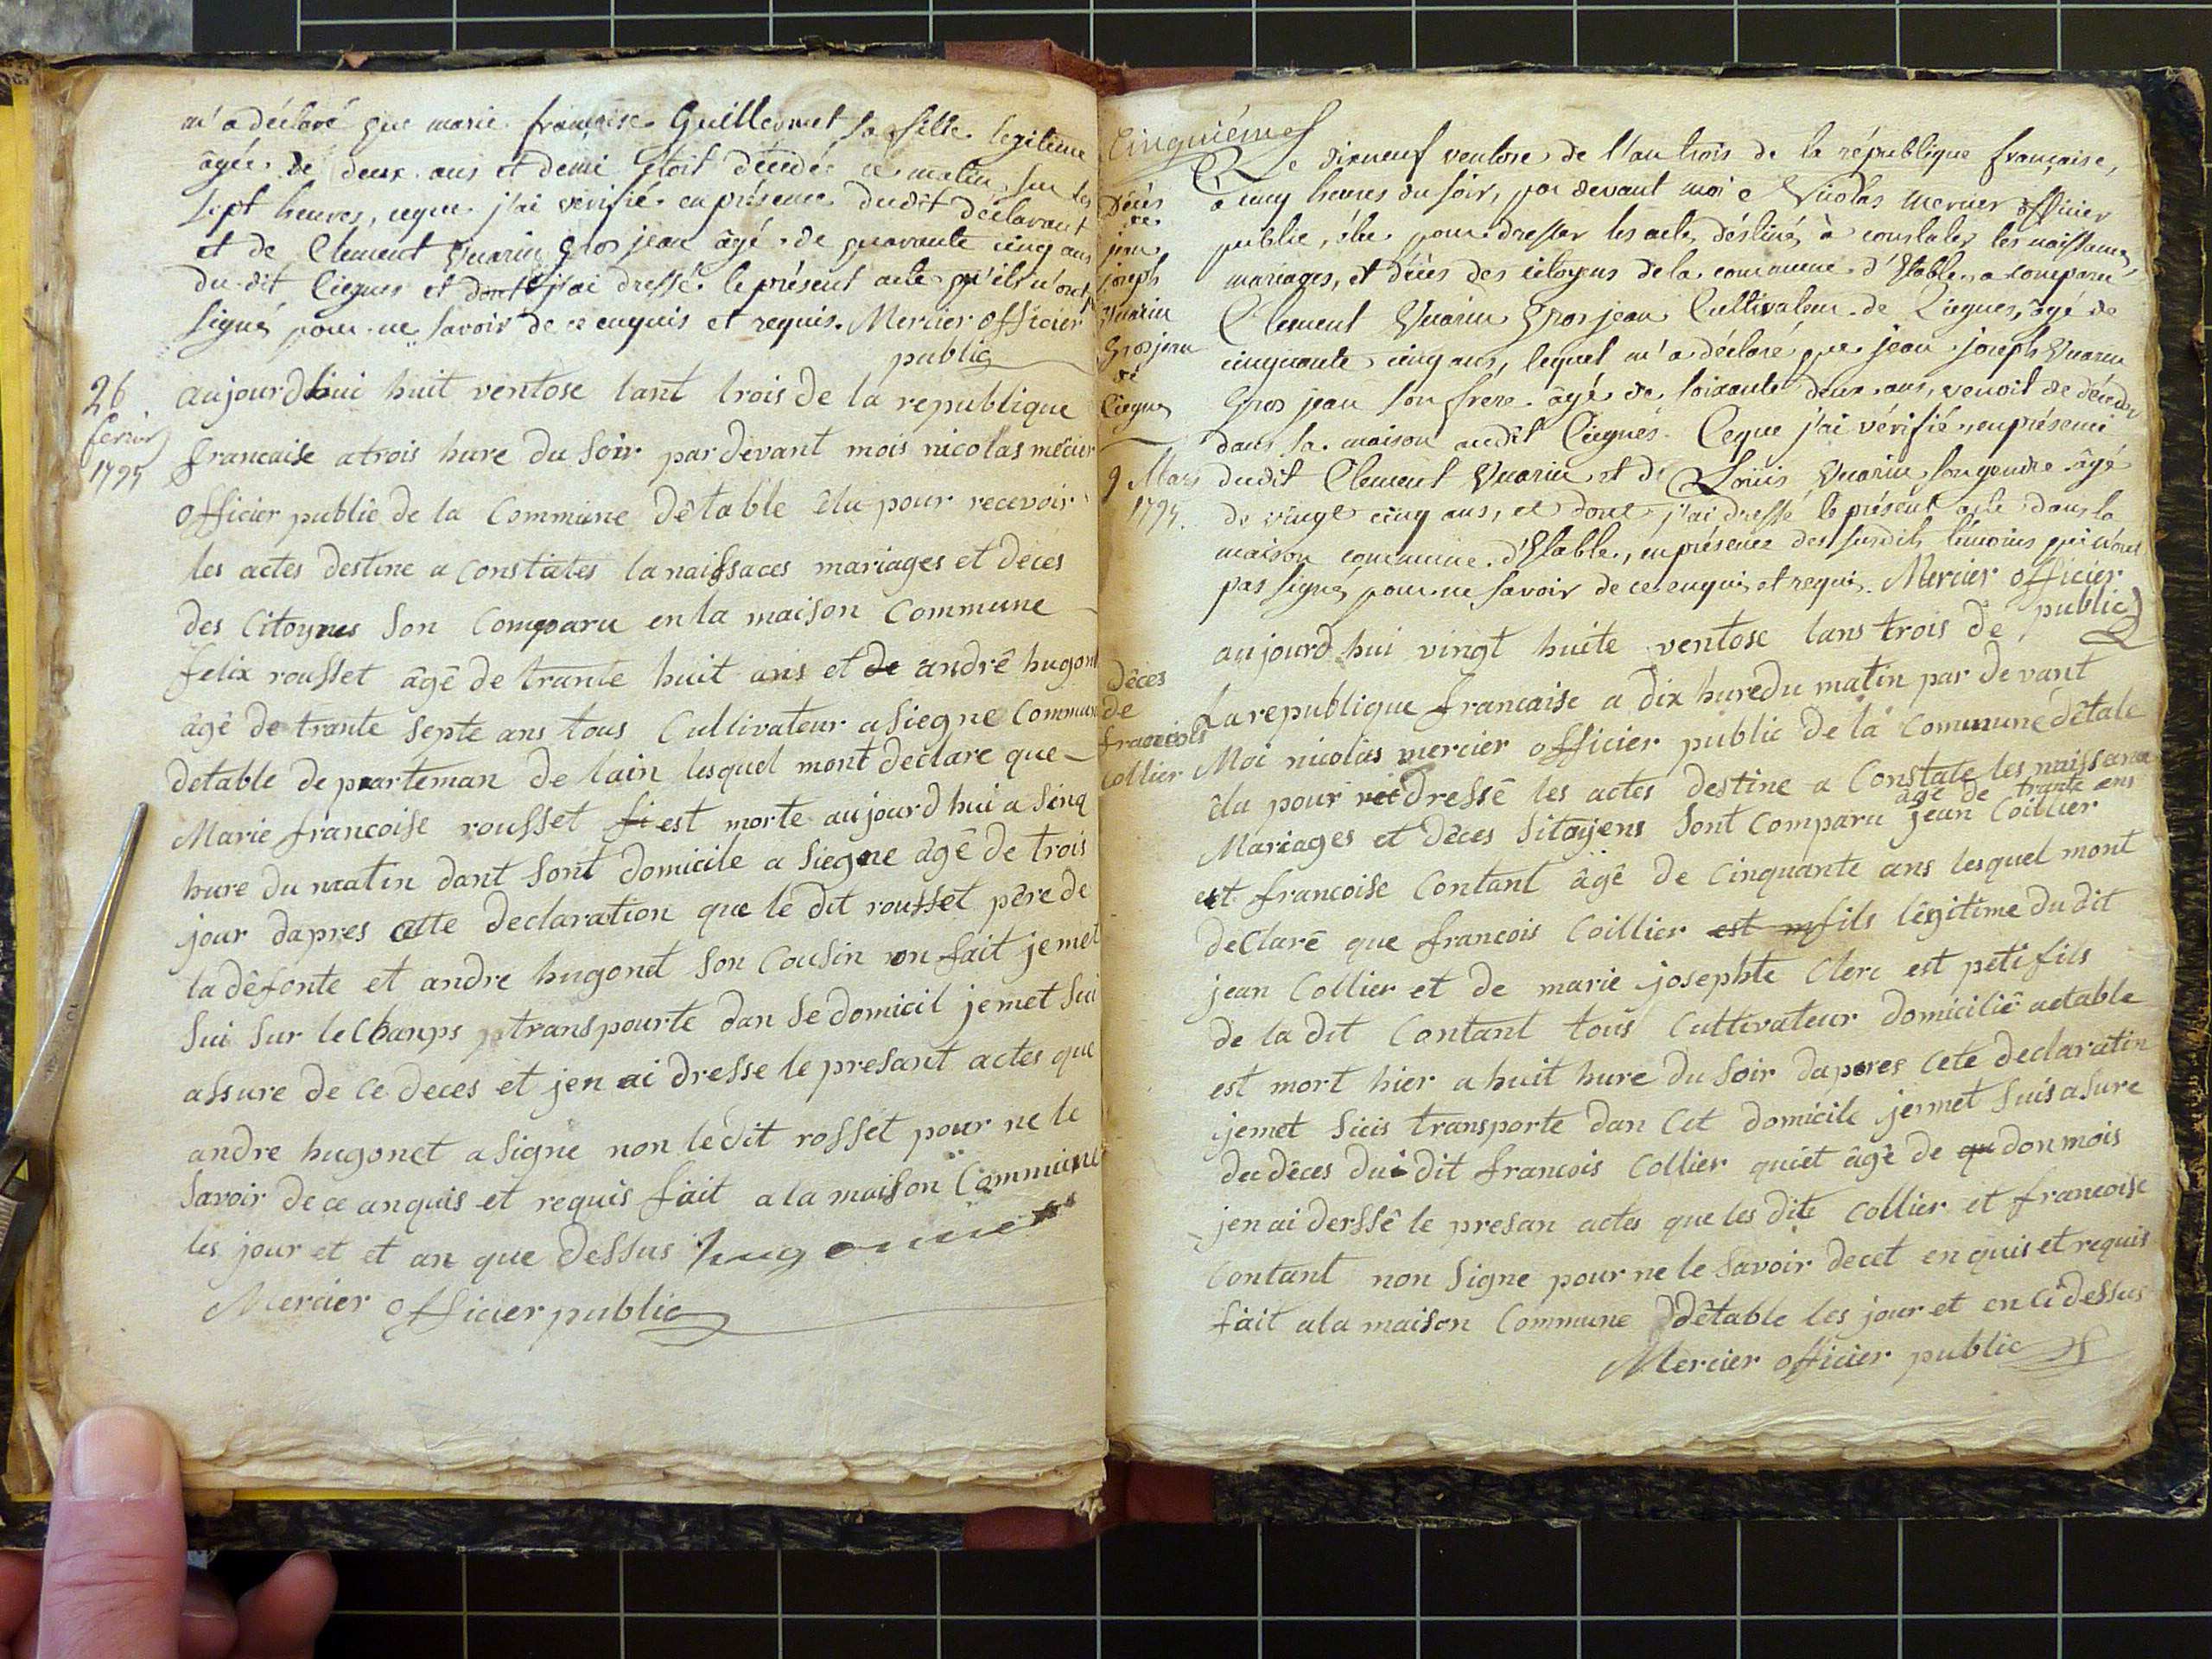 m'a déclaré que marie françoise Guillermet sa fille legitime
âgée de deux ans et demi etoit décédée ce matin sur les
sept heures, ceque j'ai vérifié en présence dudit déclarant
et de Clement Vuarin Gros jean âgé de quarante cinq ans
du dit Ciegnes et dont j'ai dressé le présent acte qu'ils n'ont
signé pour ne savoir de ce enquis et requis. Mercier officier
public
26
fevrier
1795
aujourdhui huit ventose lant trois de la republique
francaise atrois hure du soir pardevant mois nicolas mercier
officier public de la Commune dêtable êlu pour recevoir
les actes destine a constates la naissaces mariages et deces
des Citoynes son Comparu en la maison Commune
felix rousset âgê de trante huit ans et de andrê hugonet
âgê de trante septe ans tous Cultivateur a siegne Commune
detable departeman de lain lesquel mont declare que
Marie francoise rousset fi est morte aujourdhui a sinq
hure du matin dant sont domicile a siegne âgê de trois
jour dapres cette declaration que le dit rousset pêre de
la dêfonte et andre hugonet son Cousin on fait jemet
sui sur le Champs transpourte dan se domicil jemet sui
assure de ce deces et jen ai dresse le presant actes que
andre hugonet a signe non le dit rosset pour ne le
savoir de ce anquis et requis fait a la maison Commune
les jour et et an que dessus hugonnet
Mercier officier public
Cinquiéme
Décés
de
jean
joseph
Vuarin
Grosjean
de
Ciegnes
9 Mars
1795.
Le dixneuf ventose de l'an trois de la république française,
à cinq heures du soir, par devant moi Nicolas Mercier officier
public, élu pour dresser les actes déstinés à constater les naissances,
mariages, et décès des citoyens de la commune d'Etables, a comparu
Clement Vuarin Grosjean Cultivateur de Ciegnes, âgé de
cinquante cinq ans, lequel m'a déclaré que jean joseph Vuarin
Gros jean son frère âgé de soixante deux ans, venoit de décéder
dans sa maison audit Ciegnes. Ceque j'ai vérifié, en présence
dudit Clement Vuarin et de Loüis Vuarin son gendre âgé
de vingt cinq ans, et dont j'ai dressé le présent acte dans la
maison commune d'Etable, en présence des susdits témoins qui n'ont
pas signé, pour ne savoir de ce enquis et requis. Mercier officier
public
Dêces
de
francois
Collier
aujourdhui vingt huite ventose lans trois de
La republique francaise a dix hure du matin par devant
Moi nicolas mercier officier public de la Commune dêtale
êlu pour rei dressê les actes destine a Constate les naissance
âgê de trante ans
Mariages et dêces sitoyens sont comparu jean Coillier
est francoise Contant âgê de Cinquante ans lesquel mont
declarê que francois Coillier est m fils lêgitime du dit
jean Collier et de marie josephte Clerc est peti fils
de la dit Contant tous Cultivateur domiciliê aetable
est mort hier a huit hure du soir dapres cete declaratin
jemet suis transporte dan Cet domicile jemet suis asure
du dêces dui dit francois Collier quiet âgê de qu don mois
jen ai derssê le presan actes que les dite Collier et francoise
Contant non signe pour ne le savoir decet enquis et requis
fait ala maison Commune dêtable les jour et en ci dessus
Mercier officier public